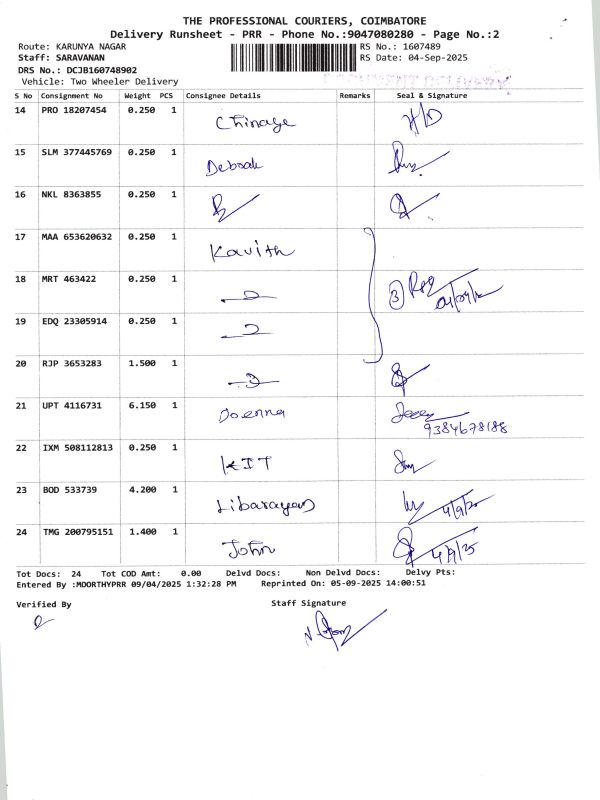 THE PROFESSIONAL COURIERS, COIMBATORE
Delivery Runsheet - PRR - Phone No.:9047080280 - Page No.:2
Route: KARUNYA NAGAR RS No.: 1607489
Staff: SARAVANAN RS Date: 04-Sep-2025
DRS No.: DCJB160748902
Vehicle: Two Wheeler Delivery
S No Consignment No Weight PCS Consignee Details Remarks Seal & Signature
14 PRO 18207454 0.250 1 H/D
15 SLM 377445769 0.250 1 Deborah
16 NKL 8363855 0.250 1
17 MAA 653620632 0.250 1 Kavith
18 MRT 463422 0.250 1 3
19 EDQ 23305914 0.250 1
20 RJP 3653283 1.500 1
21 UPT 4116731 6.150 1 Doenna
9384678188
22 IXM 508112813 0.250 1 KIT
23 BOD 533739 4.200 1 4/9/25
24 TMG 200795151 1.400 1 John 4/9/25
Tot Docs: 24 Tot COD Amt: 0.00 Delvd Docs: Non Delvd Docs: Delvy Pts:
Entered By :MOORTHYPRR 09/04/2025 1:32:28 PM Reprinted On: 05-09-2025 14:00:51
Verified By Staff Signature